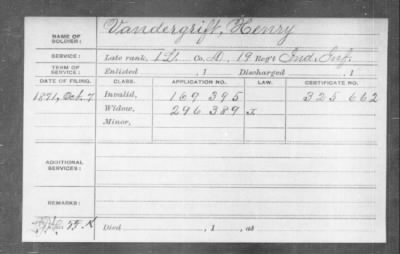 NAME OF SOLDIER: Vandergrift, Henry
SERVICE: Late rank, 1 Lt. Co. A., 19 Reg't Ind. Inf.
TERM OF SERVICE: Enlisted , 1 Discharged , 1
DATE OF FILING. CLASS. APPLICATION NO. LAW. CERTIFICATE NO.
1891, Oct. 7 Invalid, 169 395 325 662
Widow, 296 389
Minor,
ADDITIONAL SERVICES:
REMARKS:
Died , 1 , at